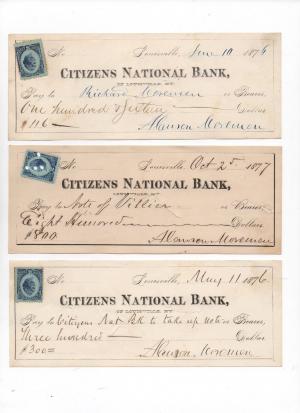 No Louisville, June 10 1876
CITIZENS NATIONAL BANK,
OF LOUISVILLE, KY.
Pay to Richard Moremen or Bearer,
One hundred & sixteen Dollars
$116 — Alanson Moremen
No Louisville, Oct 25 1877
CITIZENS NATIONAL BANK,
OF LOUISVILLE, KY.
Pay to Note of Villier or Bearer,
Eight Hundred Dollars
$800 Alanson Moremen
No Louisville, May 11 1876
CITIZENS NATIONAL BANK,
OF LOUISVILLE, KY.
Pay to Citizens Nat Bk to take up note or Bearer,
Three hundred — Dollars
$300= Alanson Moremen